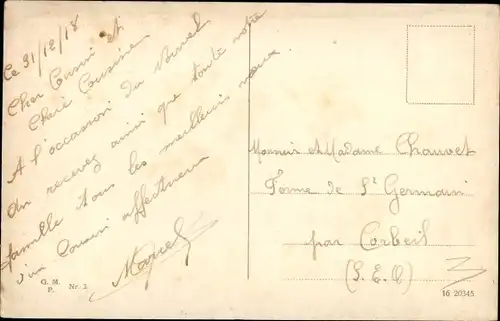 Ce 31/12/18
Cher Cousin et
Chère Cousine
A l'occasion du Nouvel
An recevez ainsi que toute votre
famille tous les meilleurs vœux
d'un Cousin affectueux
Marcel
Monsieur et Madame Chauvet
Ferme de St Germain
par Corbeil
(S.E.O)
G. M.
P. Nr. 2.
16 20345